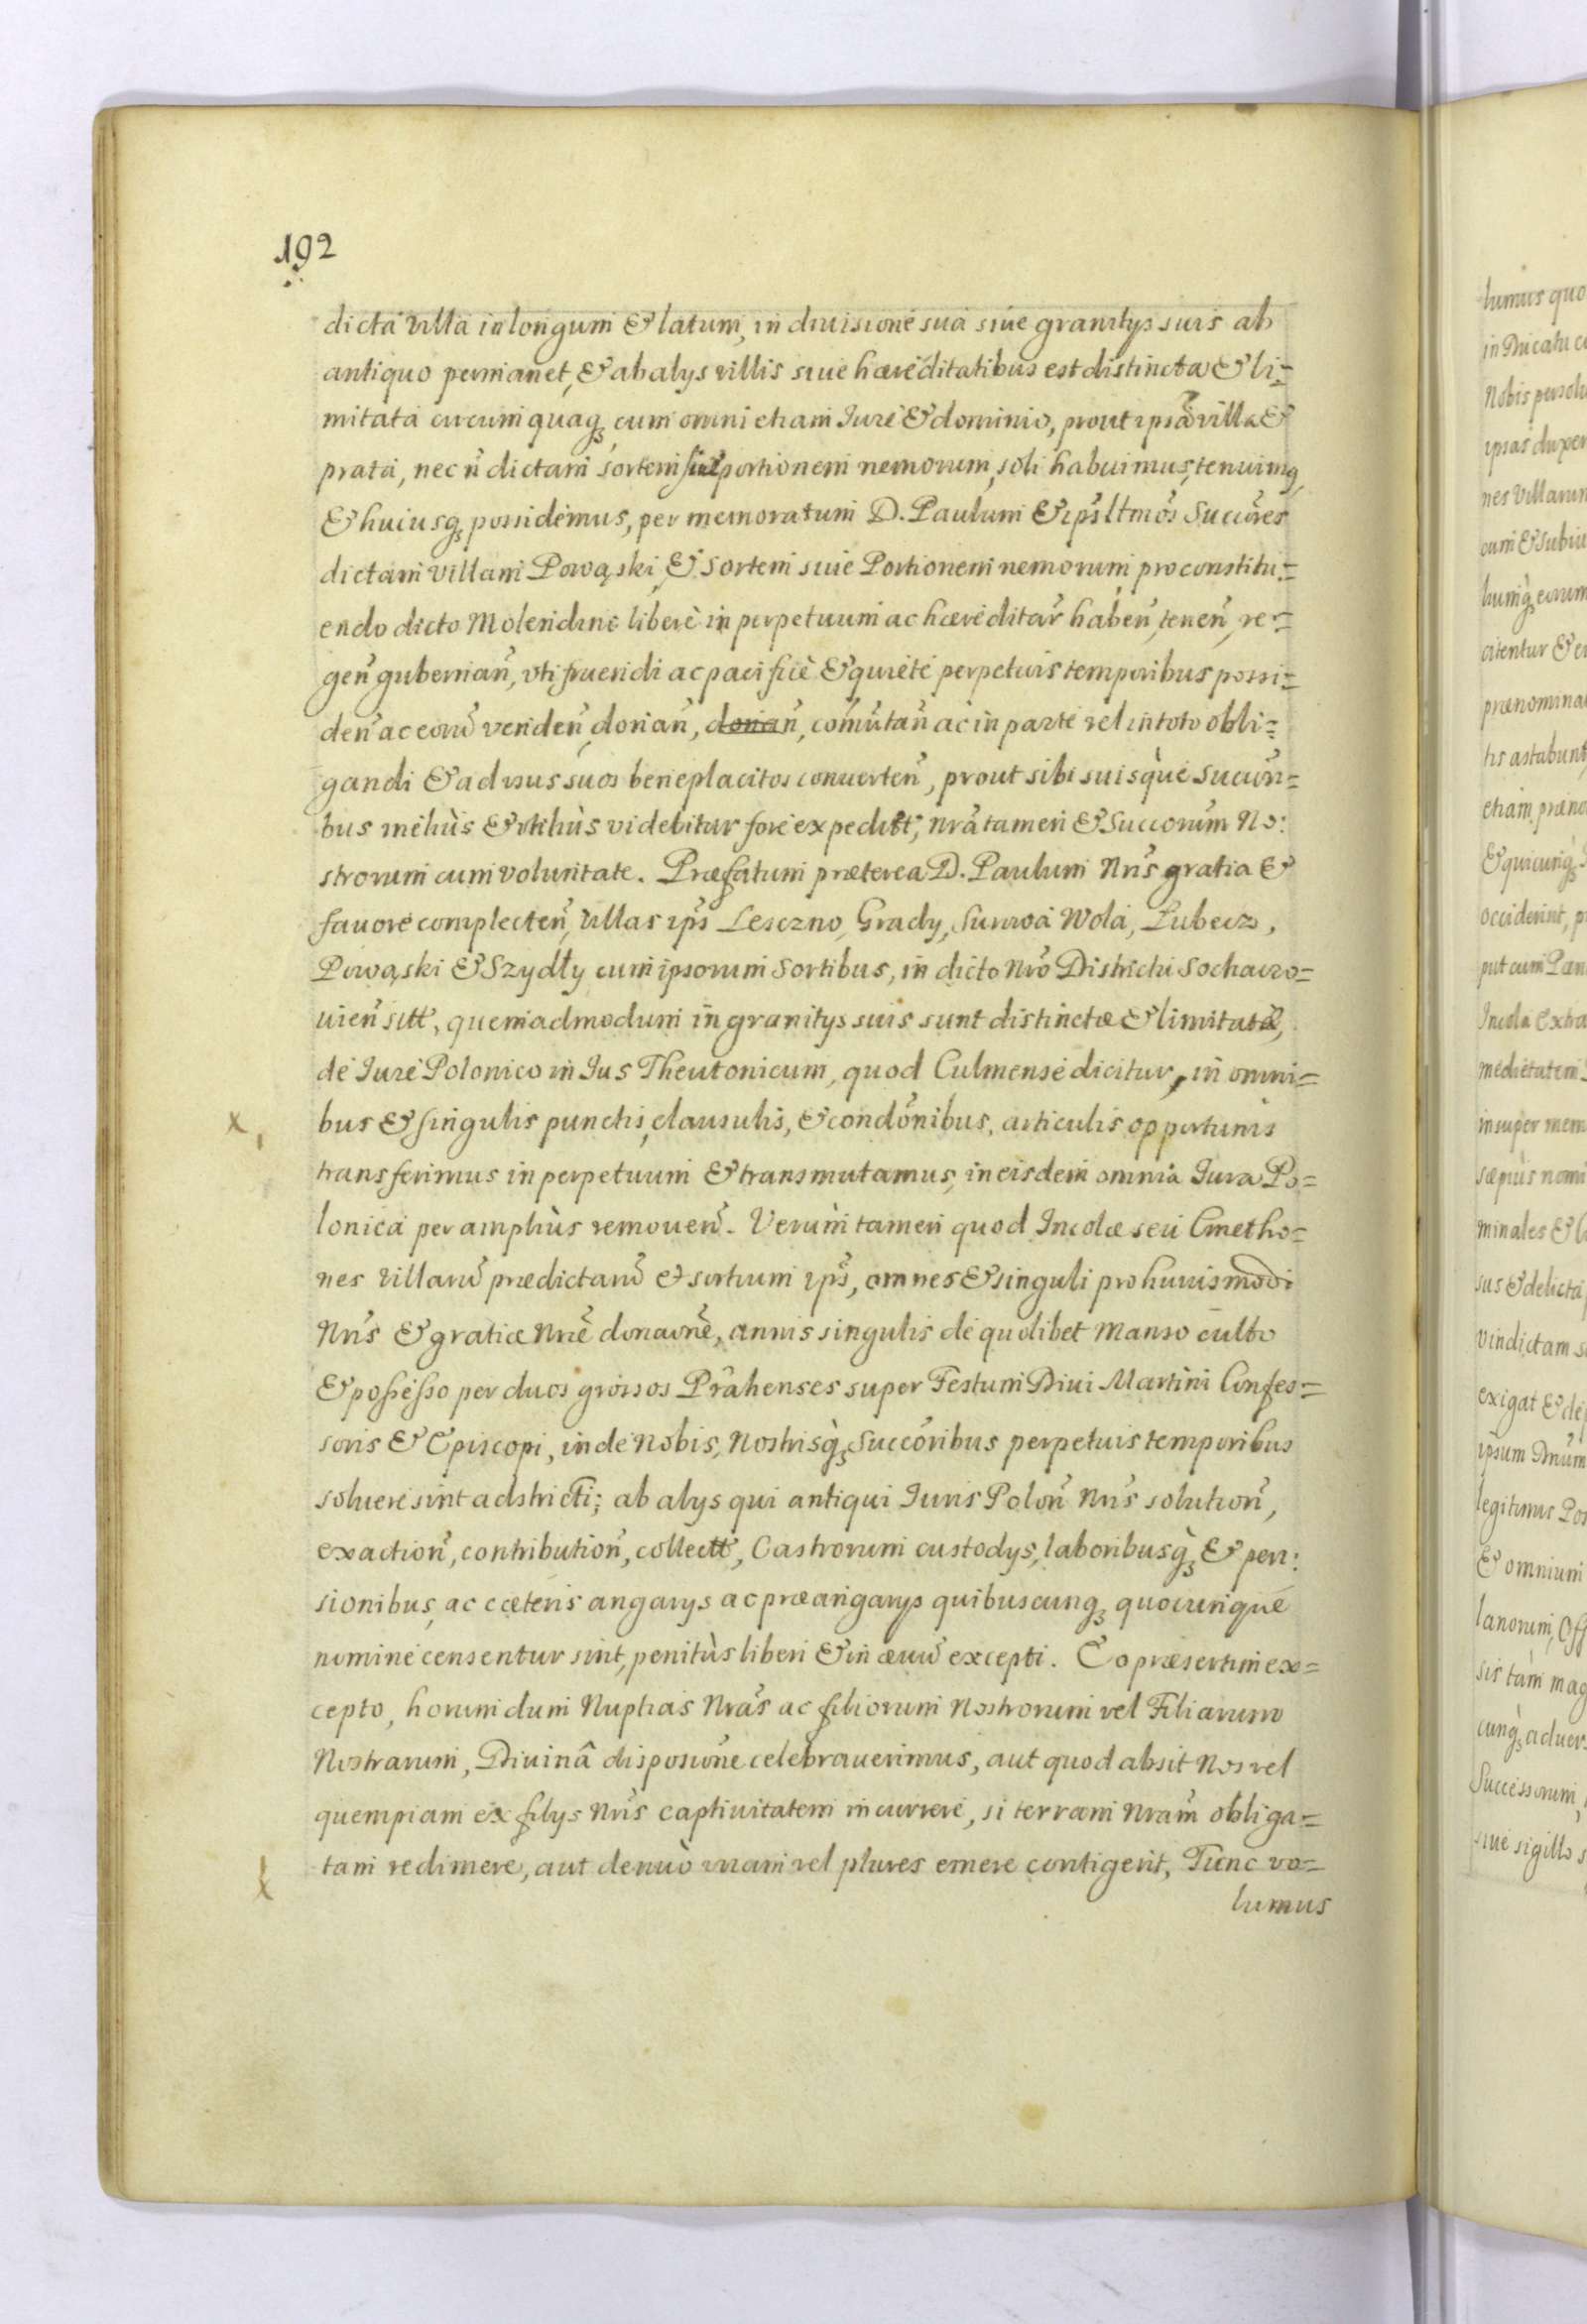 192
dicta villa in longum & latum, in diuisione sua siue granitys suis ab
antiquo permanet, & ab alys villis siue hæreditatibus est distincta & li=
mitata circumquaq, cum omni etiam Iure & dominio, prout ipsa villa &
prata, nec ñ dictam sortem siue portionem nemorum, soli habuimus, tenuimq,
& huiusq possidemus, per memoratum D. Paulum & ip̃s ltmõs Succ̃res
dictam villam Powąski, & sortem siue Portionem nemorum pro constitu=
endo dicto Molendino liberè in perpetuum ac hæreditar̃ habeñ, teneñ, re=
geñ guberñañ, vti fruendi ac pacificè & quietè perpetuis temporibus possi=
deñ ac eorũ vendeñ, donañ, donañ, com̃utañ ac in parte vel in toto obli=
gandi & ad usus suos beneplacitos conuerteñ, prout sibi suisquè succõri=
bus meliùs & vtiliùs videbitur fore expedire; nr̃a tamen & Succorũm No:
strorum cum voluntate. Præfatum præterea D. Paulum Nr̃is gratia &
favore complecteñ, villas ip̃s Leszno, Grady, Surowa Wola, Lubecz,
Powąski & Szydły cum ipsorum Sortibus, in dicto Nrõ Districtu Sochaczo=
uieñ sitt, quemadmodum in granitys suis sunt distinctæ & limitatæ,
de Iure Polonico in Ius Theutonicum, quod Culmense dicitur, in omni=
x, bus & singulis punctis, clausulis, & condõnibus, articulis opportunis
transferimus in perpetuum & transmutamus, in eisdem omnia Iura Po=
lonica per ampliùs remoueñ. Verùm tamen quod Incolæ seu Cmetho=
nes villarũ prædictarũ et sortium ip̃s, omnes & singuli pro huiusmodi
Nr̃is & gratiæ Nr̃æ donaõne, annis singulis de quolibet Manso culto
& possesso per duos grossos Prãhenses super Festum Diui Martini Confes=
soris & Episcopi, inde Nobis, Nostrisq̀ Succõribus perpetuis temporibus
soluere sint adstricti; ab alys qui antiqui Iuris Poloñ Nr̃is solutioñ,
exactioñ, contributioñ, collectt, Castrorum custodys, laboribusq̀ & pen:
sionibus, ac cæteris angarys ac præangarys quibuscunq quocunque
nomine censentur sint, penitùs liberi & in æuũ excepti. Eo præsertim ex=
cepto, horum dum Nuptias Nrãs ac filiorum Nostrorum vel Filiarum
Nostrarum, Diuinâ disposiõne celebrauerimus, aut quod absit Nos vel
quempiam ex filys Nr̃is captiuitatem incurrere, si terram Nrãm obliga=
tam redimere, aut denuò unam vel plures emere contigerit, Tunc vo=
lumus